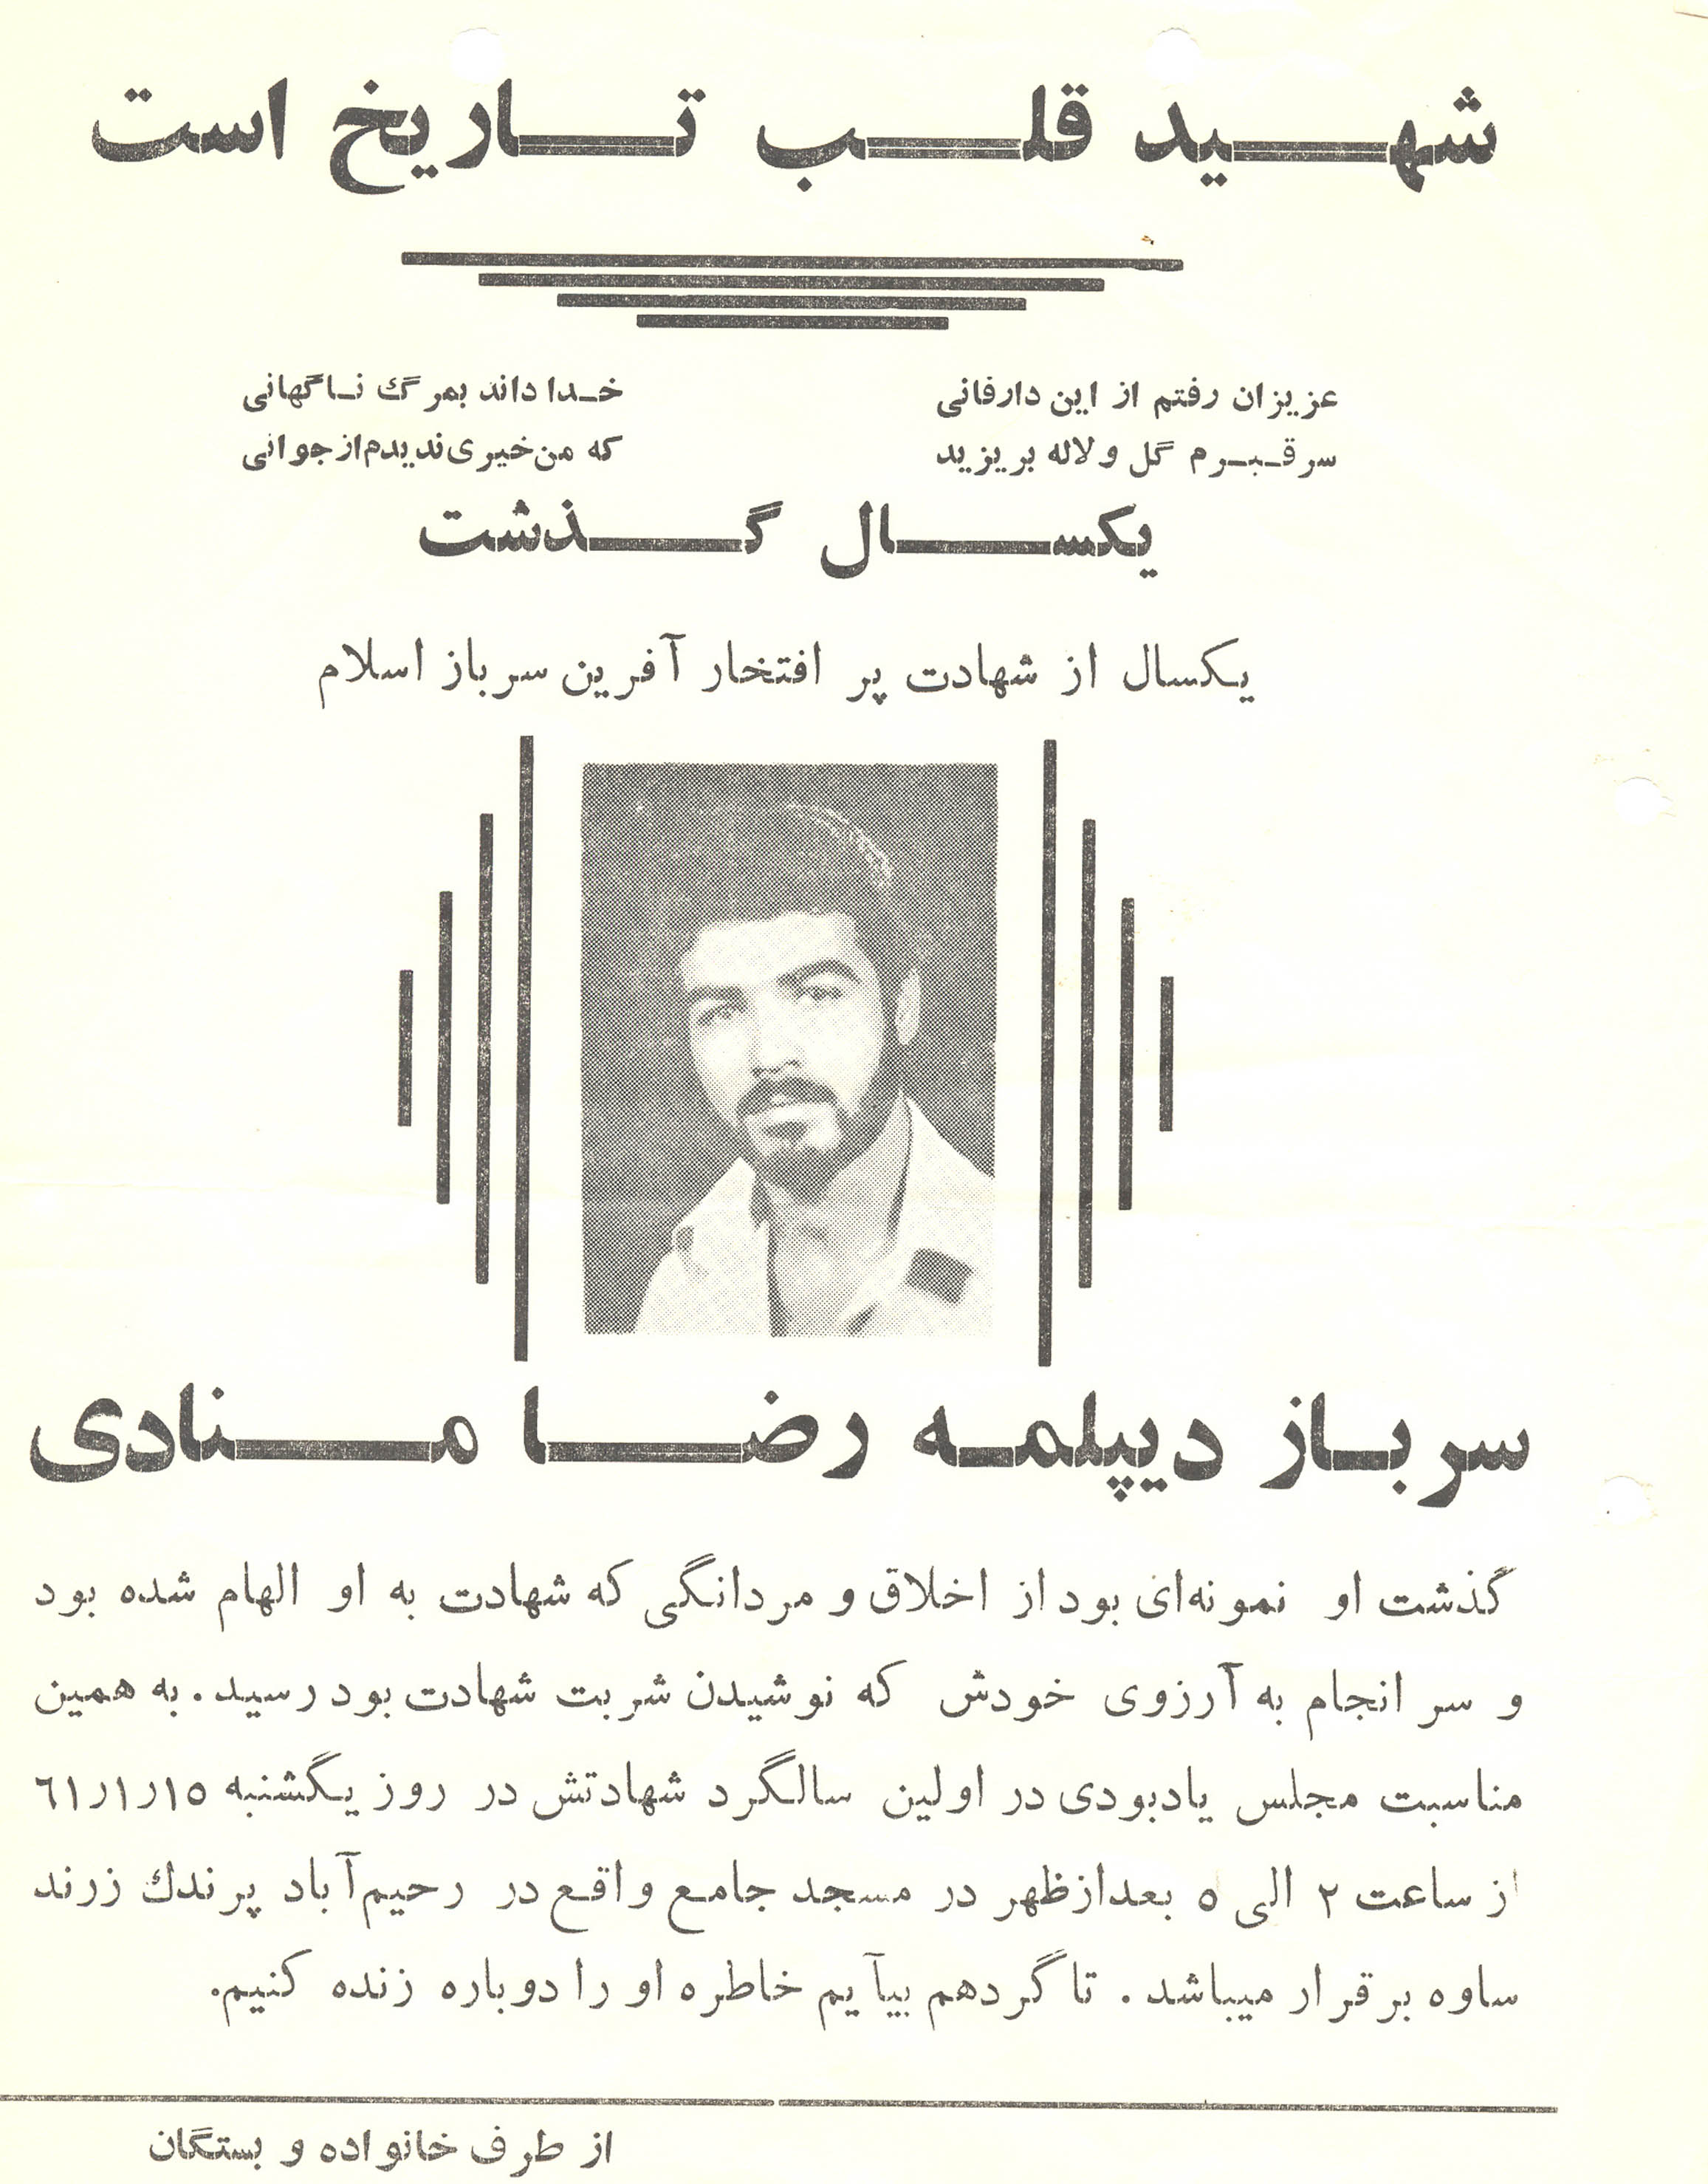 شهید قلب تاریخ است
عزیزان رفتم از این دارفانی خدا داند بمرگ ناگهانی
سر قبرم گل و لاله بریزید که من خیری ندیدم از جوانی
یکسال گذشت
یکسال از شهادت پر افتخار آفرین سرباز اسلام
سرباز دیپلمه رضا منادی
گذشت او نمونه‌ای بود از اخلاق و مردانگی که شهادت به او الهام شده بود
و سر انجام به آرزوی خودش که نوشیدن شربت شهادت بود رسید. به همین
مناسبت مجلس یادبودی در اولین سالگرد شهادتش در روز یکشنبه ۶۱ر۱ر۱۵
از ساعت ۲ الی ۵ بعدازظهر در مسجد جامع واقع در رحیم‌آباد پرندك زرند
ساوه برقرار میباشد. تا گردهم بیآیم خاطره او را دوباره زنده کنیم.
از طرف خانواده و بستگان